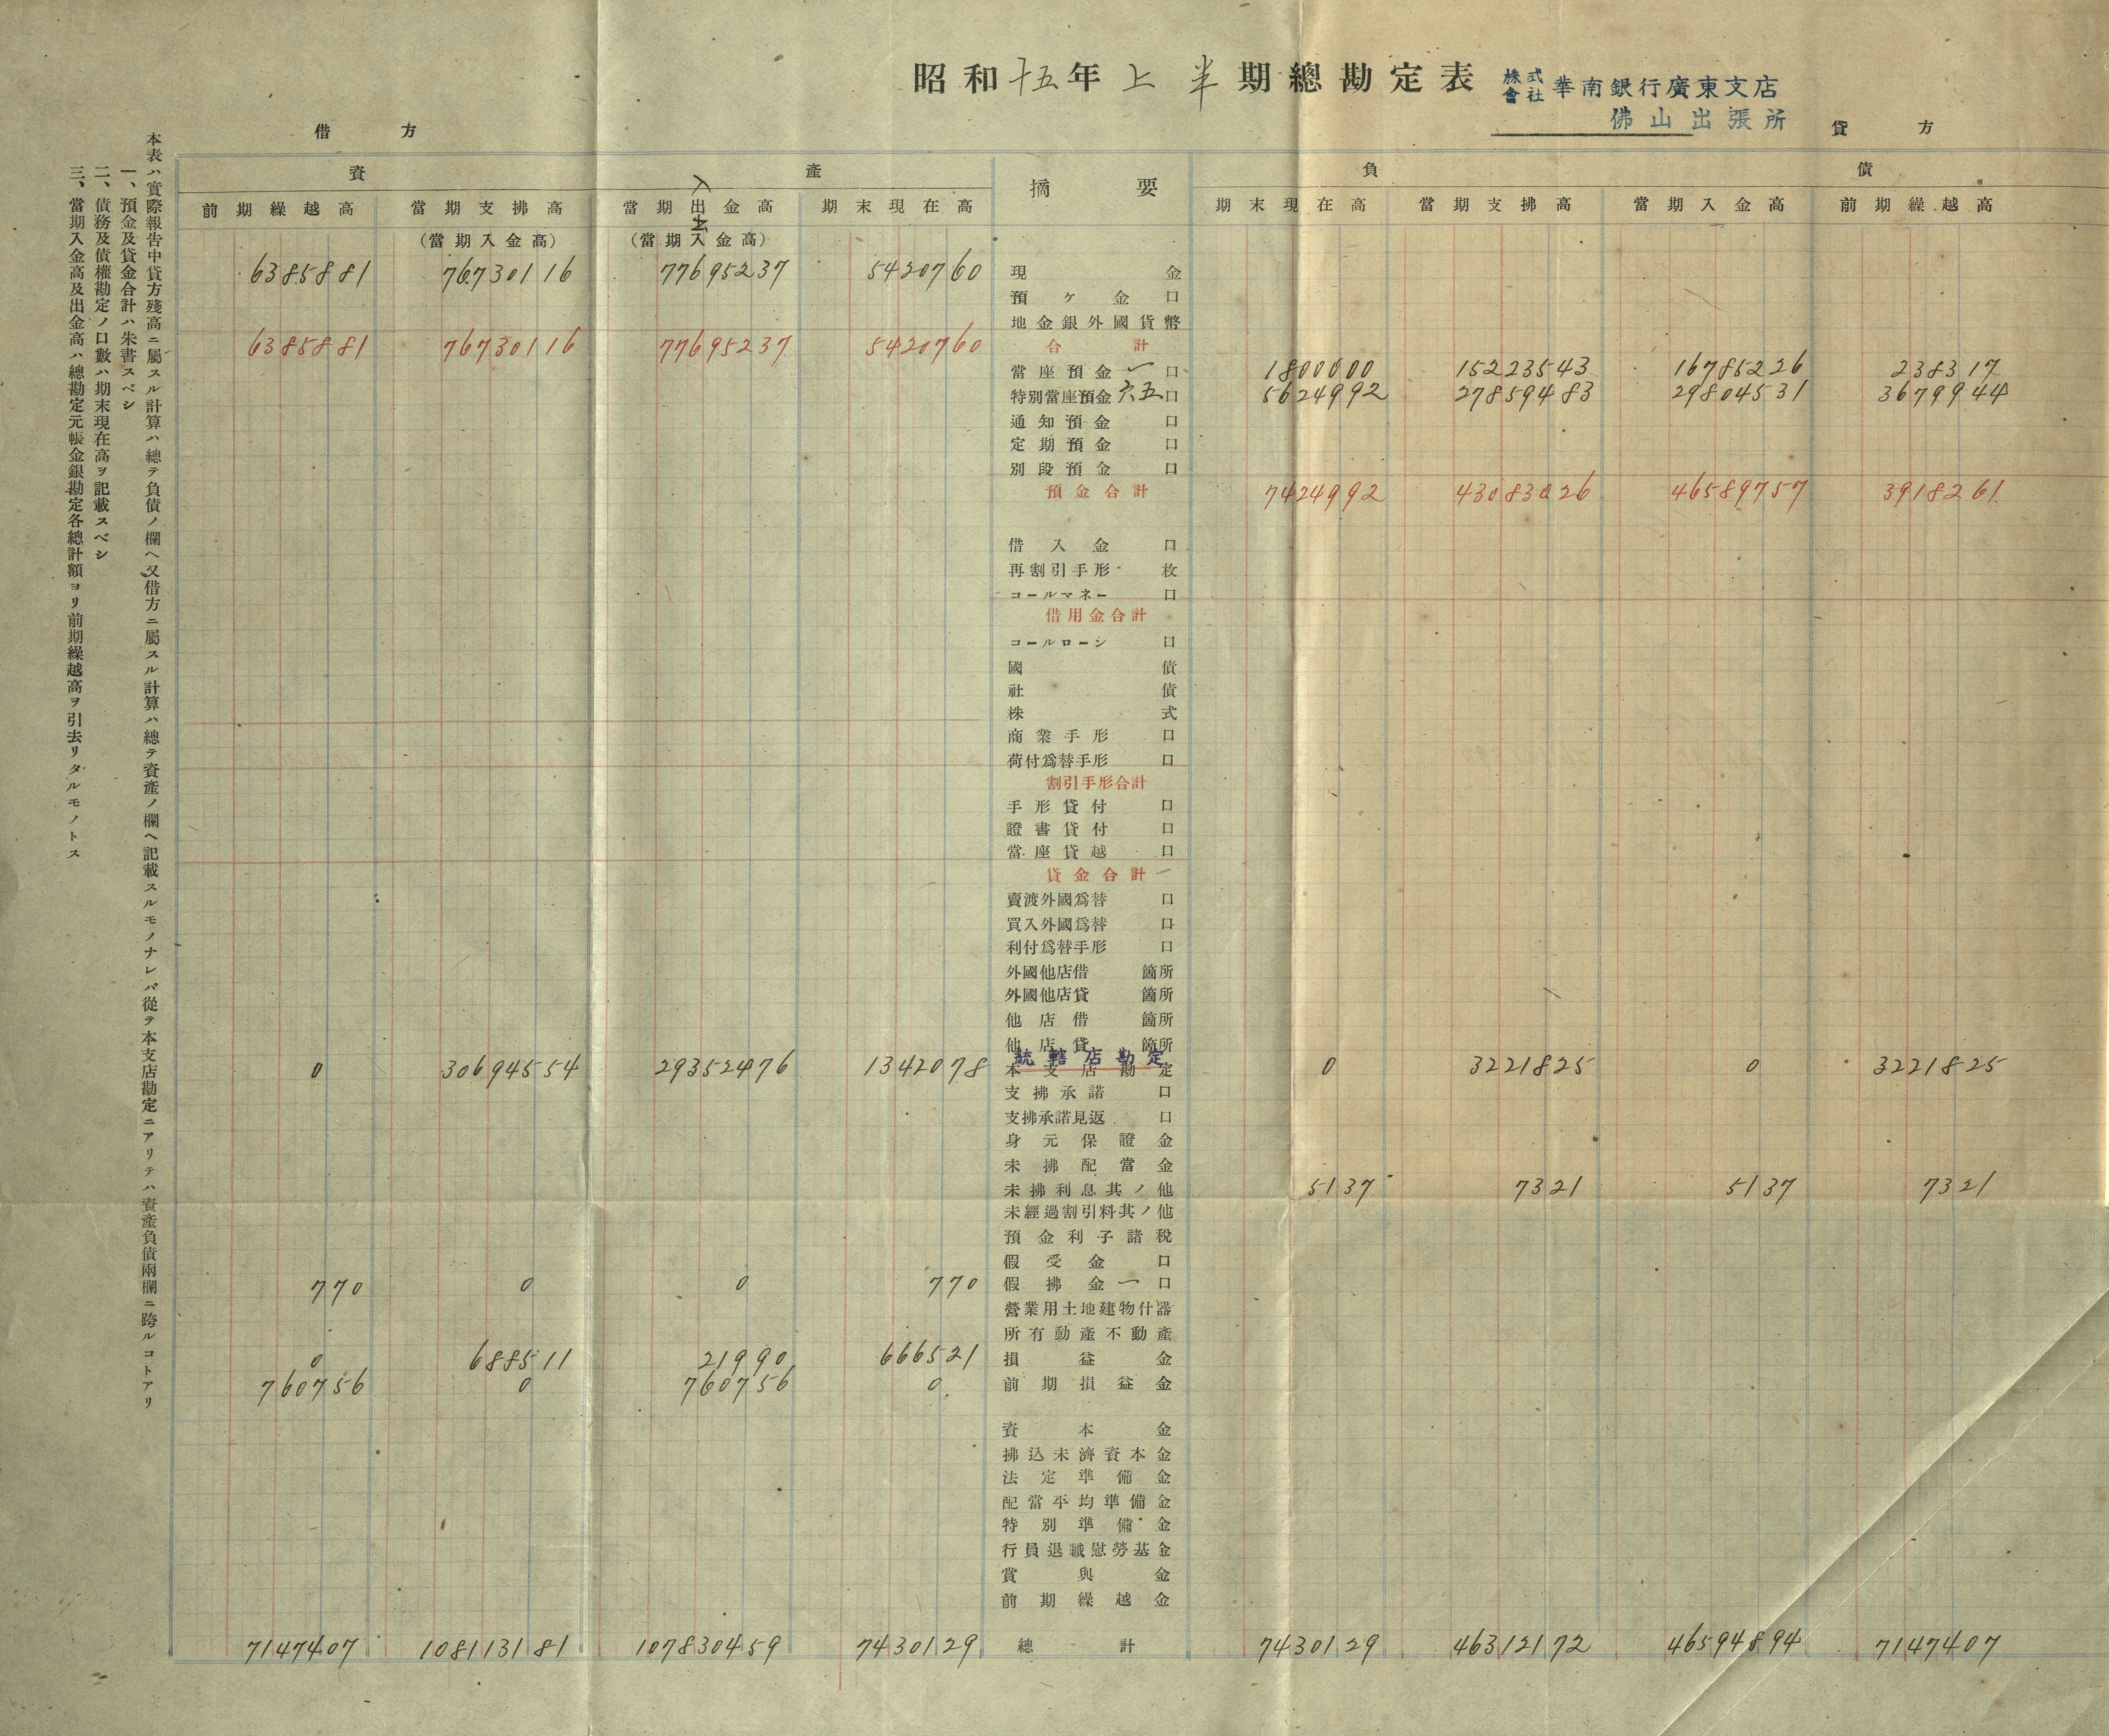 昭和十五年上半期總勘定表
株式會社 華南銀行廣東支店
佛山出張所
借方
貸方
資產
摘要
負債
前期繰越高 當期支拂高 當期出金高 期末現在高 期末現在高 當期支拂高 當期入金高 前期繰越高
(當期入金高) (當期入金高)
入
6385881 76730116 77695237 5420760 現金
預ヶ金 口
地金銀外國貨幣
6385881 76730116 77695237 5420760 合計
當座預金 一 口 1800000 15223543 16785226 238317
特別當座預金 六五 口 5624992 27859483 29804531 3679944
通知預金 口
定期預金 口
別段預金 口
預金合計 7424992 43083026 46589757 3918261
借入金 口
再割引手形 枚
コールマネー 口
借用金合計
コールローン 口
國債
社債
株式
商業手形 口
荷付爲替手形 口
割引手形合計
手形貸付 口
證書貸付 口
當座貸越 口
貸金合計
賣渡外國爲替 口
買入外國爲替 口
利付爲替手形 口
外國他店借 箇所
外國他店貸 箇所
他店借 箇所
他店貸 箇所
統轄店勘定
0 30694554 29352476 1342078 本支店勘定 0 3221825 0 3221825
支拂承諾 口
支拂承諾見返 口
身元保證金
未拂配當金
未拂利息其ノ他 5137 7321 5137 7321
未經過割引料其ノ他
預金利子諸稅
假受金 口
770 0 0 770 假拂金 一 口
營業用土地建物什器
所有動產不動產
0 688511 21990 666521 損益金
760756 0 760756 0 前期損益金
資本金
拂込未濟資本金
法定準備金
配當平均準備金
特別準備金
行員退職慰勞基金
賞與金
前期繰越金
7147407 108113181 107830459 7430129 總計 7430129 46312172 46594894 7147407
本表ハ實際報告中貸方殘高ニ屬スル計算ハ總テ負債ノ欄ヘ又借方ニ屬スル計算ハ總テ資產ノ欄ヘ記載スルモノナレバ從テ本支店勘定ニアリテハ資產負債兩欄ニ跨ルコトアリ
一、預金及貸金合計ハ朱書スベシ
二、債務及債權勘定ノ口數ハ期末現在高ヲ記載スベシ
三、當期入金高及出金高ハ總勘定元帳金銀勘定各總計額ヨリ前期繰越高ヲ引去リタルモノトス